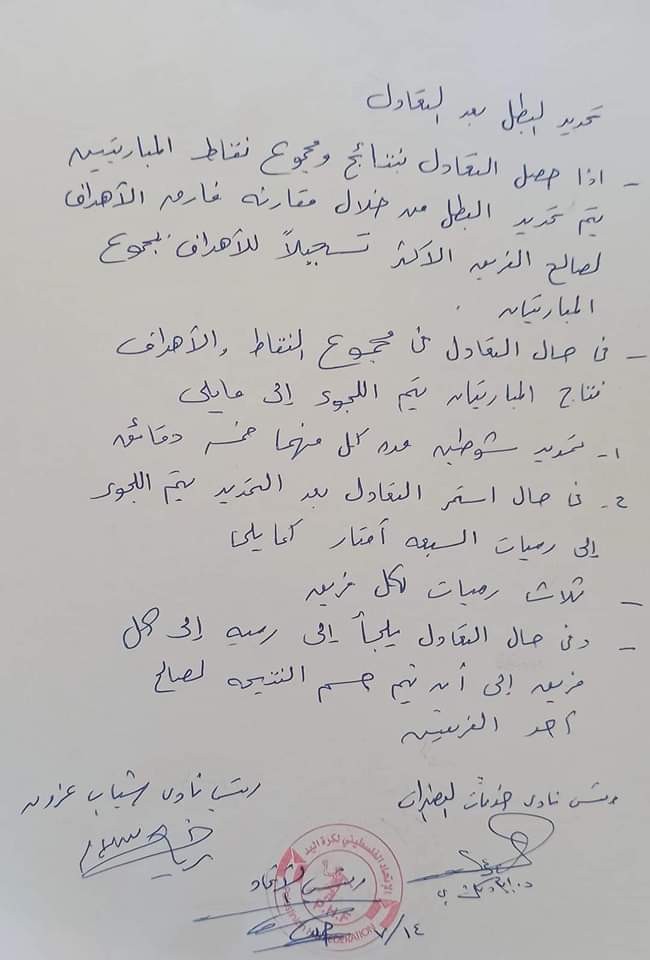 تحديد البطل بعد التعادل
- اذا حصل التعادل بنتائج ومجموع نقاط المباريتين
يتم تحديد البطل من خلال مقارنه فارق الأهداف
لصالح الفريق الأكثر تسجيلاً للأهداف بمجموع
المباريتان .
- في حال التعادل في مجموع النقاط والأهداف
نتاج المباريتان يتم اللجوء إلى مايلي
١- تمديد شوطين مده كل منهما خمسه دقائق
٢- في حال استمر التعادل بعد التمديد يتم اللجوء
إلى رميات السبعه أمتار كما يلي
- ثلاث رميات لكل فريق
- وفي حال التعادل يلجأ إلى رميه إلى كل
فريق إلى أن يتم حسم النتيجه لصالح
أحد الفريقين
رئيس نادي خدمات البريج
رئيس نادي شباب عزون
الإتحاد الفلسطيني لكرة اليد
P.H.F
FEDERATION
رئيس الاتحاد
٧/١٤